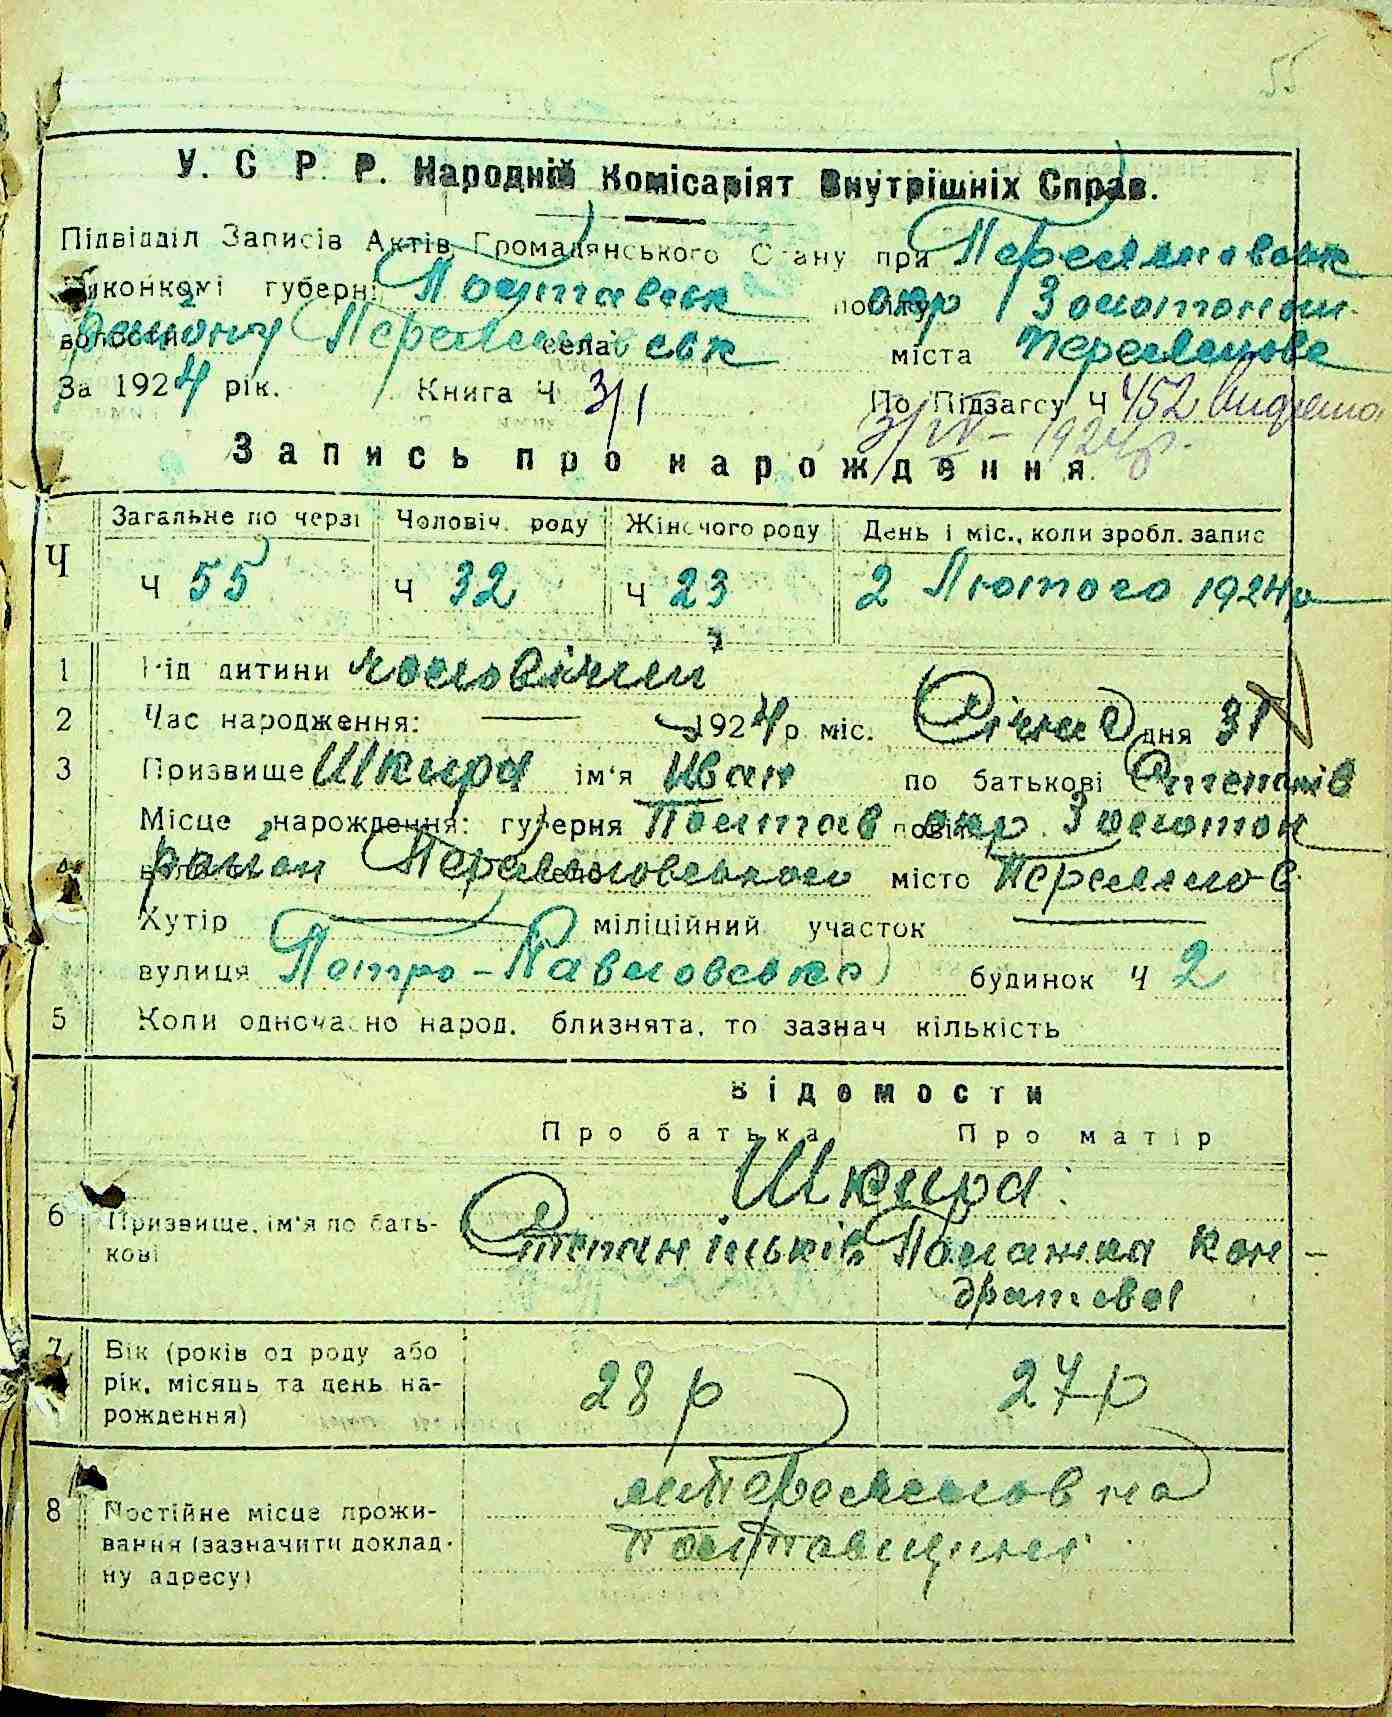 55
У. С. Р. Р. Народній Комісаріят Внутрішніх Справ.
Підвідділ Записів Актів Громадянського Стану при Переяславськ
Виконкомі губерні Полтавськ повіту окр Золотонош.
волости району Переяславськ села міста Переяслове
За 1924 рік. Книга Ч 3/1 По Підзагсу Ч 452 видано
3/IV – 1924р.
Запись про народження
Ч Загальне по черзі Чоловіч. роду Жіночого роду День і міс., коли зробл. запис
Ч 55 Ч 32 Ч 23 2 Лютого 1924р
1 Рід дитини чоловічий
2 Час народження: — 1924р міс. Січня дня 31
3 Призвище Шкира ім'я Иван по батькові Степанів
Місце нарождення: губерня Полтав повіт окр. Золотон
4 район Переяславського село місто Переяслов
Хутір — міліційний участок —
вулиця Петро-Павловська будинок Ч 2
5 Коли одночасно народ. близнята, то зазнач кількість
Відомости
Про батька Про матір
Шкира
6 Призвище, ім'я по бать- Степан Ільків Поманка Кон-
кові дратова
7 Вік (років од роду або
рік, місяць та день на- 28 р 27 р
рождення)
м. Переяслов на
8 Постійне місце прожи- Полтавщині
вання (зазначити доклад-
ну адресу)